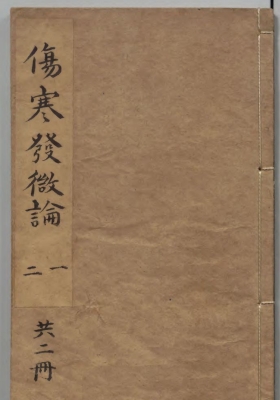 傷寒發微論
一二
共二冊